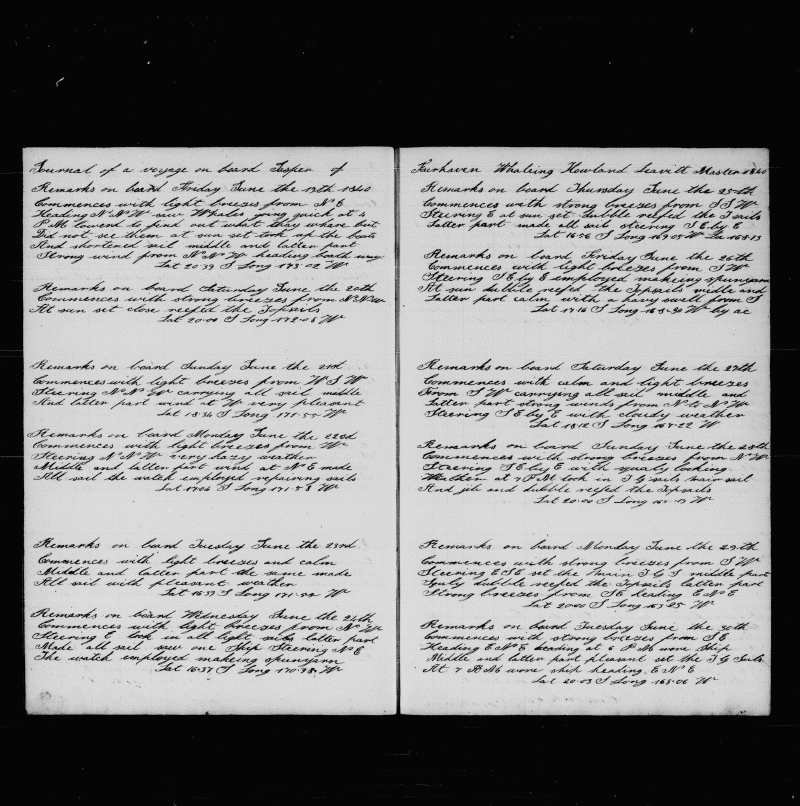 Journal of a voyage on board Jasper of
Remarks on board Friday June the 19th 1840
Commences with light breezes from N E
Heading N N W saw Whales going quick at 4
P M lowerd to find out what thay whare but
Did not see them at sun set took up the boats
And shortened sail middle and latter part
Strong wind from N N W heading boath ways
Lat 20-39 S Long 173-02 W
Remarks on board Saturday June the 20th
Commences with strong breezes from N N W
At sun set close reefed the Topsails
Lat 20-00 S Long 172-06 W
Remarks on board Sunday June the 21st
Commences with light breezes from W S W
Steering N N W carrying all sail middle
And latter part wind at W very pleasant
Lat 18-34 S Long 171-55 W
Remarks on board Monday June the 22nd
Commences with light breezes from W
Steering N N W very hazy weather
Middle and latter part wind at N E made
All sail the watch employed repairing sails
Lat 17-04 S Long 171-58 W
Remarks on board Tuesday June the 23rd
Commences with light breezes and calm
Middle and latter part the same made
All sail with pleasant weather
Lat 16-37 S Long 171-54 W
Remarks on board Wednesday June the 24th
Commences with light breezes from N W
Steering E took in all light sails latter part
Made all sail saw one Ship Steering N E
The watch employed makeing spunyarn
Lat 16-37 S Long 170-38 W
Fairhaven Whaleing Howland Leavitt Master 1840
Remarks on board Thursday June the 25th
Commences with strong breezes from S S W
Steering E at sun set dubble reefed the T sails
Latter part made all sail steering S E by E
Lat 16-56 S Long 169-05 W La 168-13
Remarks on board Friday June the 26th
Commences with light breezes from S W
Steering S E by E employed makeing spunyarn
At sun dubble reefed the Topsails midle and
Latter part calm with a havy swell from S
Lat 17-16 S Long 168-30 W by ac
Remarks on board Saturday June the 27th
Commences with calm and light breezes
From S W carrying all sail middle and
Latter part strong wind from N to N W
Steering S E by E with cloudy weather
Lat 18-12 S Long 167-22 W
Remarks on board Sunday June the 28th
Commences with strong breezes from N W
Steering S E by E with squaly looking
Wather at 7 P M took in T G sails main sail
And jib and dubble reefed the Topsails
Lat 20-00 S Long 165-17 W
Remarks on board Monday June the 29th
Commences with strong breezes from S W
Steering E S E set the main T G S middle part
Squly dubble reefed the Topsails latter part
Strong breezes from S E heading E N E
Lat 20-00 S Long 163-25 W
Remarks on board Tuesday June the 30th
Commences with strong breezes from S E
Heading E N E heading at 6 P M wore Ship
Middle and latter part pleasant set the T G Sails
At 7 A M wore ship heading E N E
Lat 20-03 S Long 163-06 W